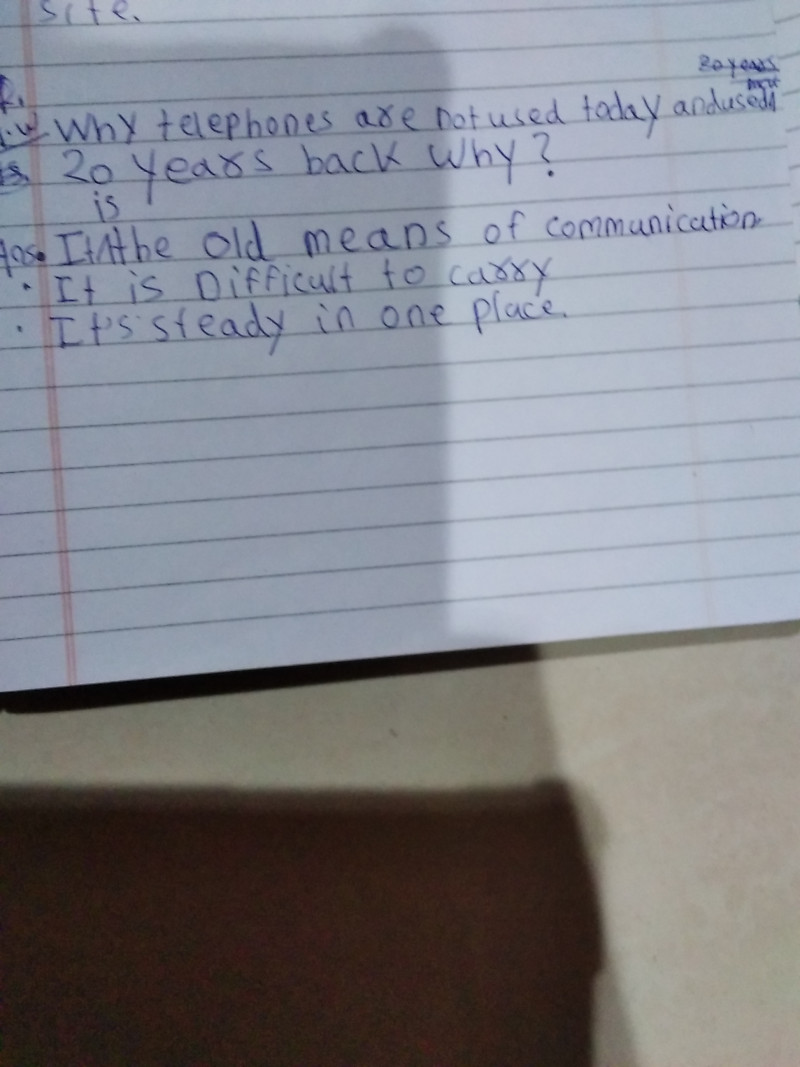 site.
20 years
Why telephones are not used today and used
20 years back Why?
is
Ans. It the old means of communication
· It is Difficult to carry
· It's steady in one place.